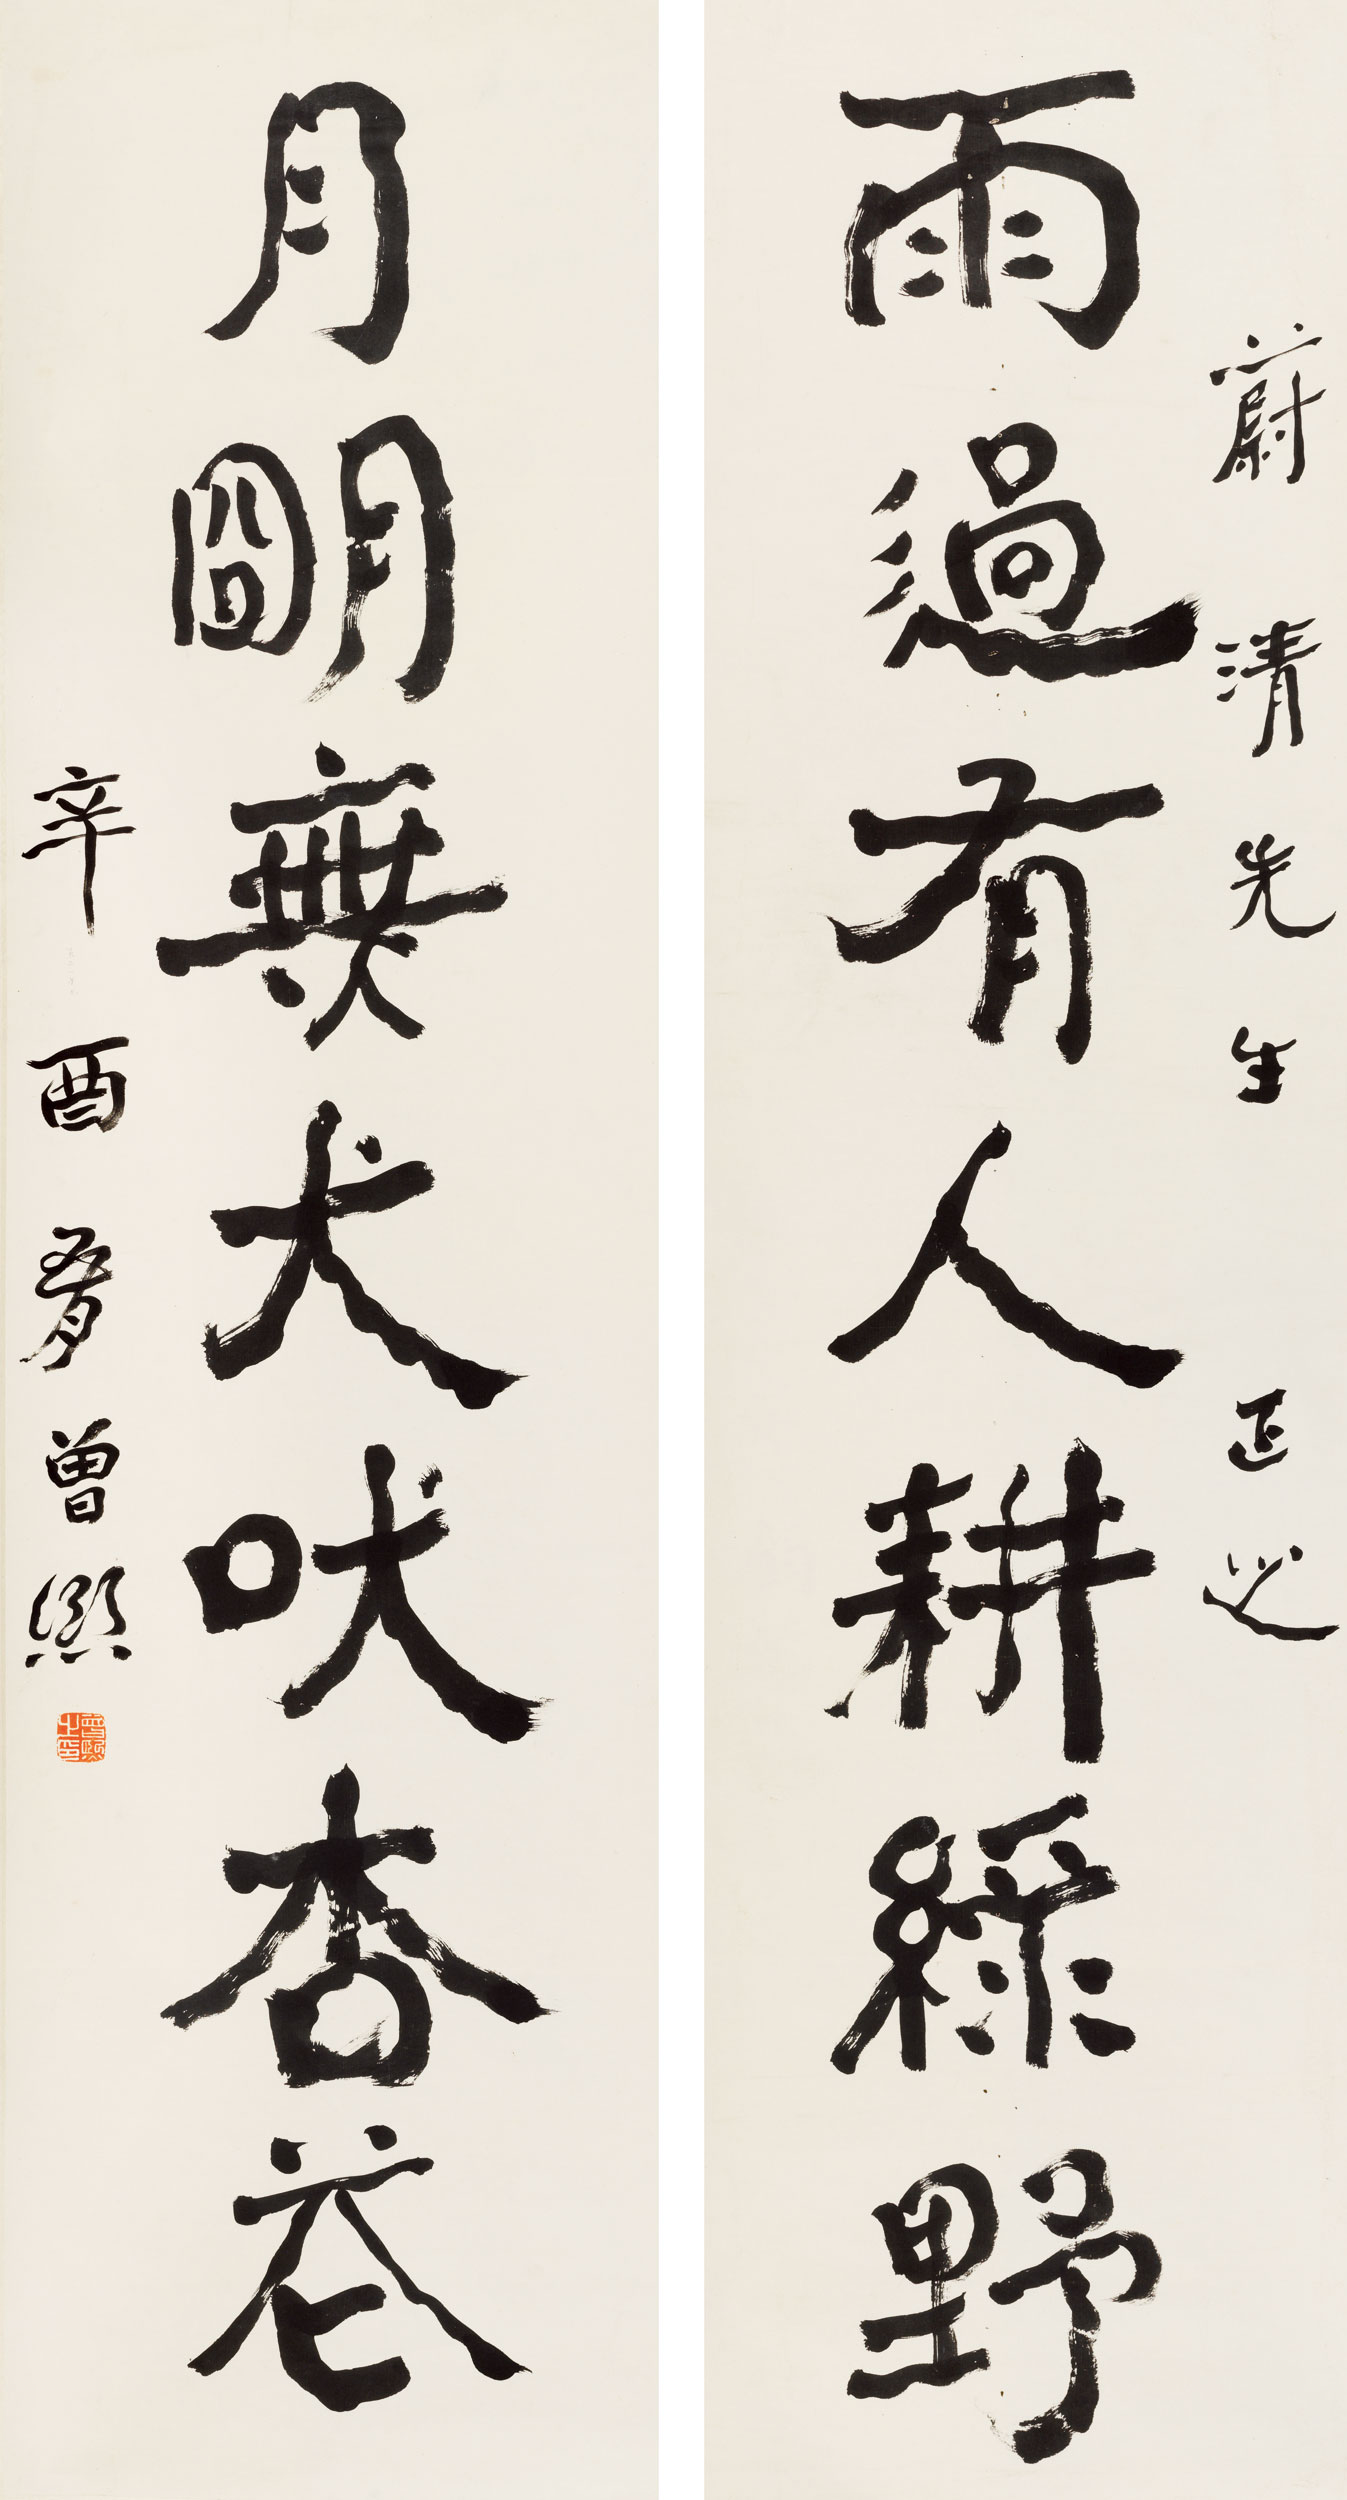 雨過有人耕綠野
蔚清先生正之
月朙無犬吠杏花
辛酉 曾熙
曾熙之印